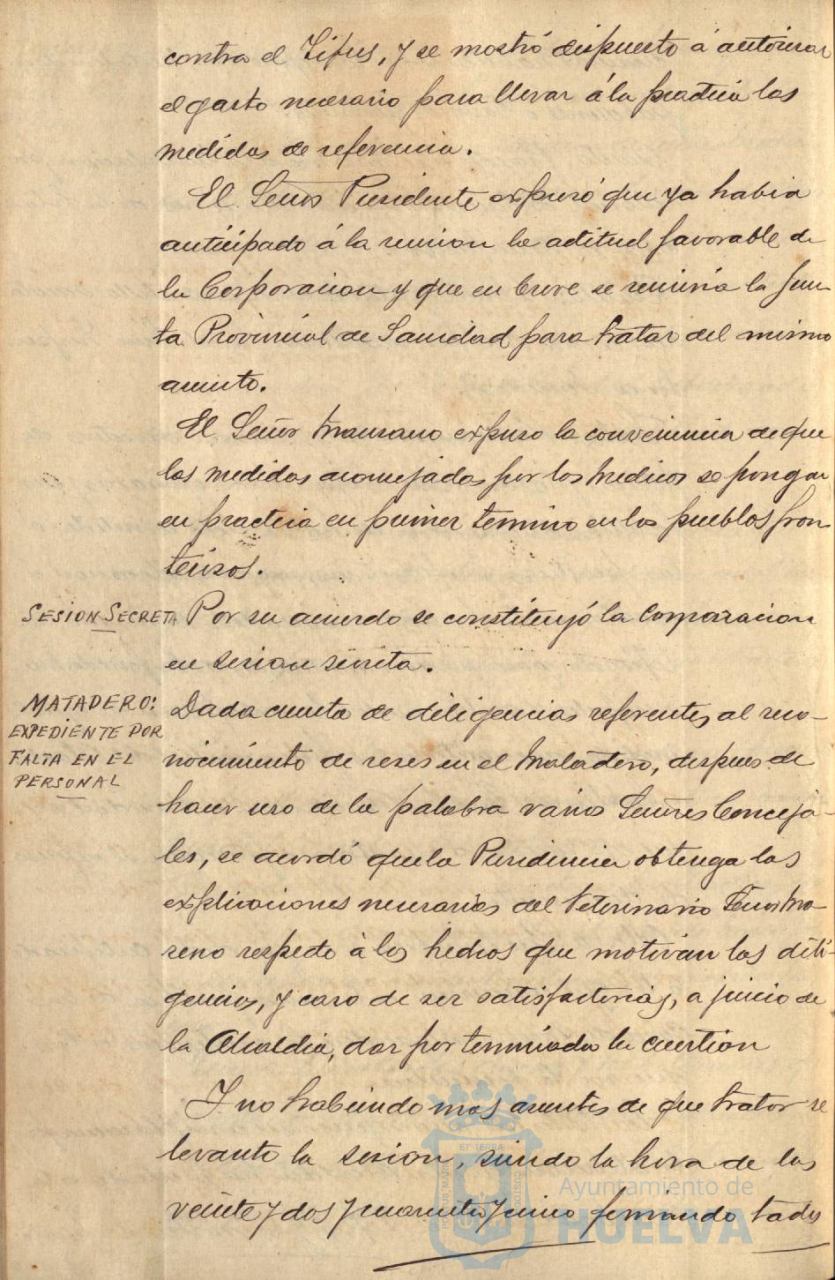 contra el Tifus, y se mostró dispuesto á autorizar
el gasto necesario para llevar á la practica las
medidas de referencia.
El Señor Presidente expusó que ya habia
anticipado á la reunion la actitud favorable de
la Corporacion y que en breve se reuniria la Jun-
ta Provincial de Sanidad para tratar del mismo
asunto.
El Señor Manzano expuso la conveniencia de que
las medidas aconsejadas por los Medicos se pongan
en practica en primer termino en los pueblos fron
terizos.
SESION SECRETA
Por su acuerdo se constituyó la Corporacion
en sesion secreta.
MATADERO:
EXPEDIENTE POR
FALTA EN EL
PERSONAL
Dada cuenta de diligencias referentes al reco-
nocimiento de reses en el Matadero, despues de
hacer uso de la palabra varios Señores Conceja-
les, se acordó que la Presidencia obtenga las
explicaciones necesarias del Veterinario Señor Mo-
reno respecto á los hechos que motivan las dili-
gencias, y caso de ser satisfactorias, a juicio de
la Alcaldia, dar por terminada la cuestion
Y no habiendo mas asuntos de que tratar se
levanto la sesion, siendo la hora de las
veinte y dos y cuarenta y cinco
Ayuntamiento de
HUELVA